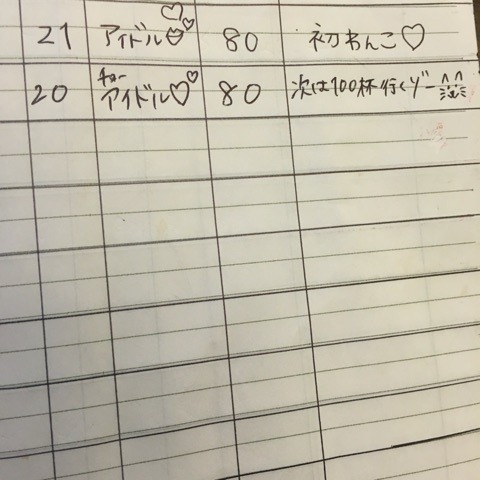 21 アイドル♡ 80 初わんこ♡
チョー
20 アイドル♡ 80 次は100杯行くゾー